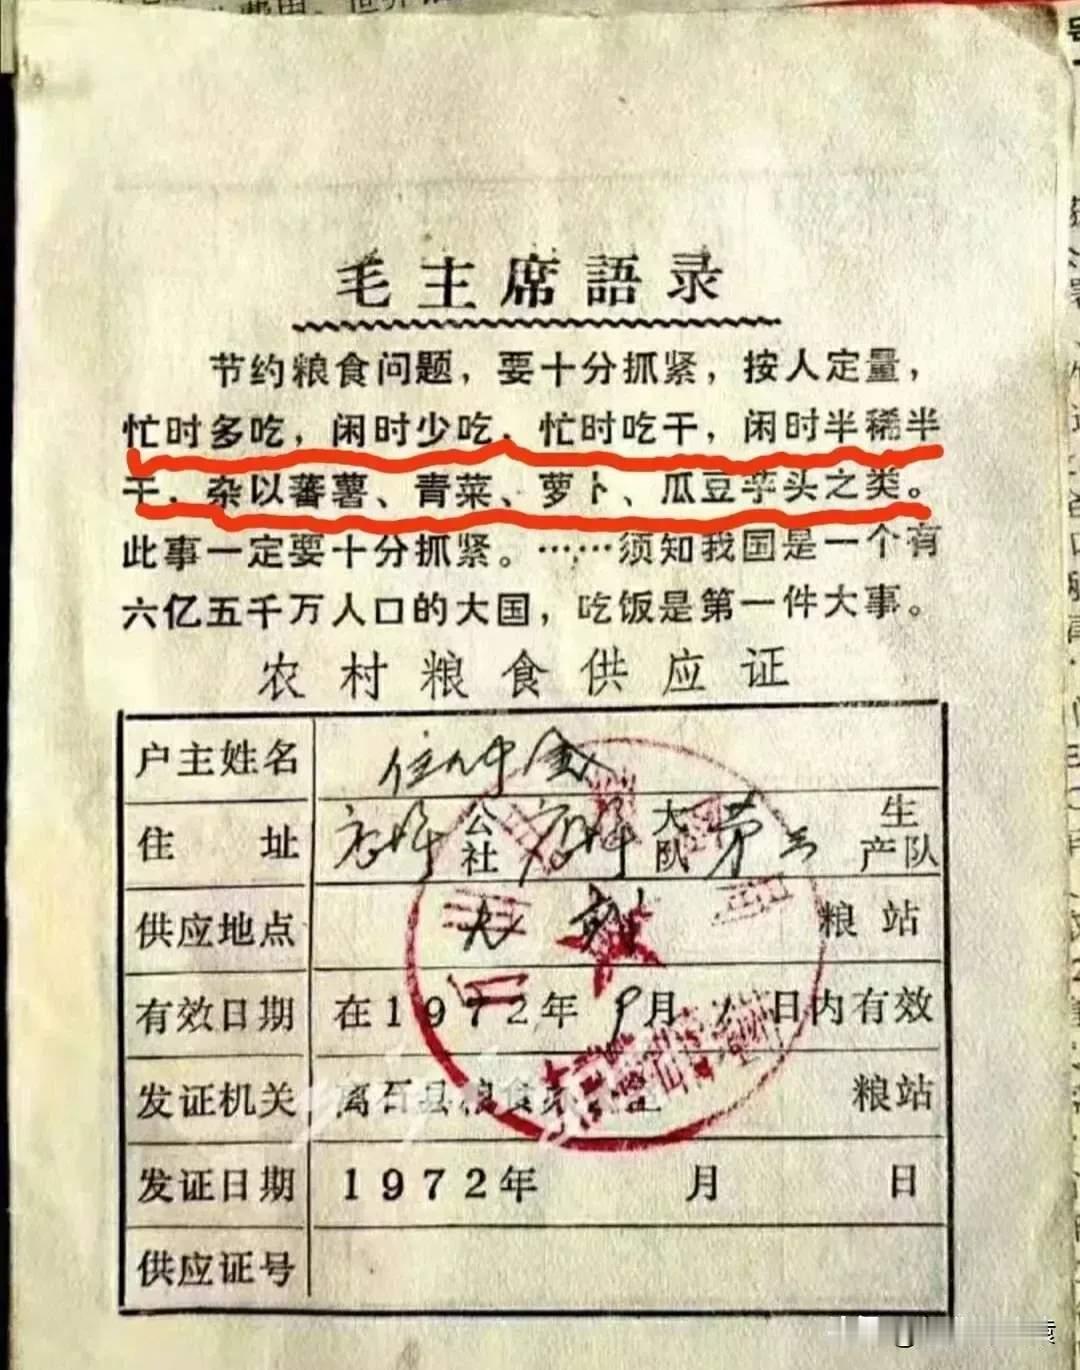 毛主席語录
节约粮食问题，要十分抓紧，按人定量，
忙时多吃，闲时少吃，忙时吃干，闲时半稀半
干，杂以蕃薯、青菜、萝卜、瓜豆芋头之类。
此事一定要十分抓紧。……须知我国是一个有
六亿五千万人口的大国，吃饭是第一件大事。
农村粮食供应证
户主姓名
住址 公社 大队 第三 生产队
供应地点 粮站
有效日期 在1972年9月 日内有效
发证机关 离石县粮食 粮站
发证日期 1972年 月 日
供应证号